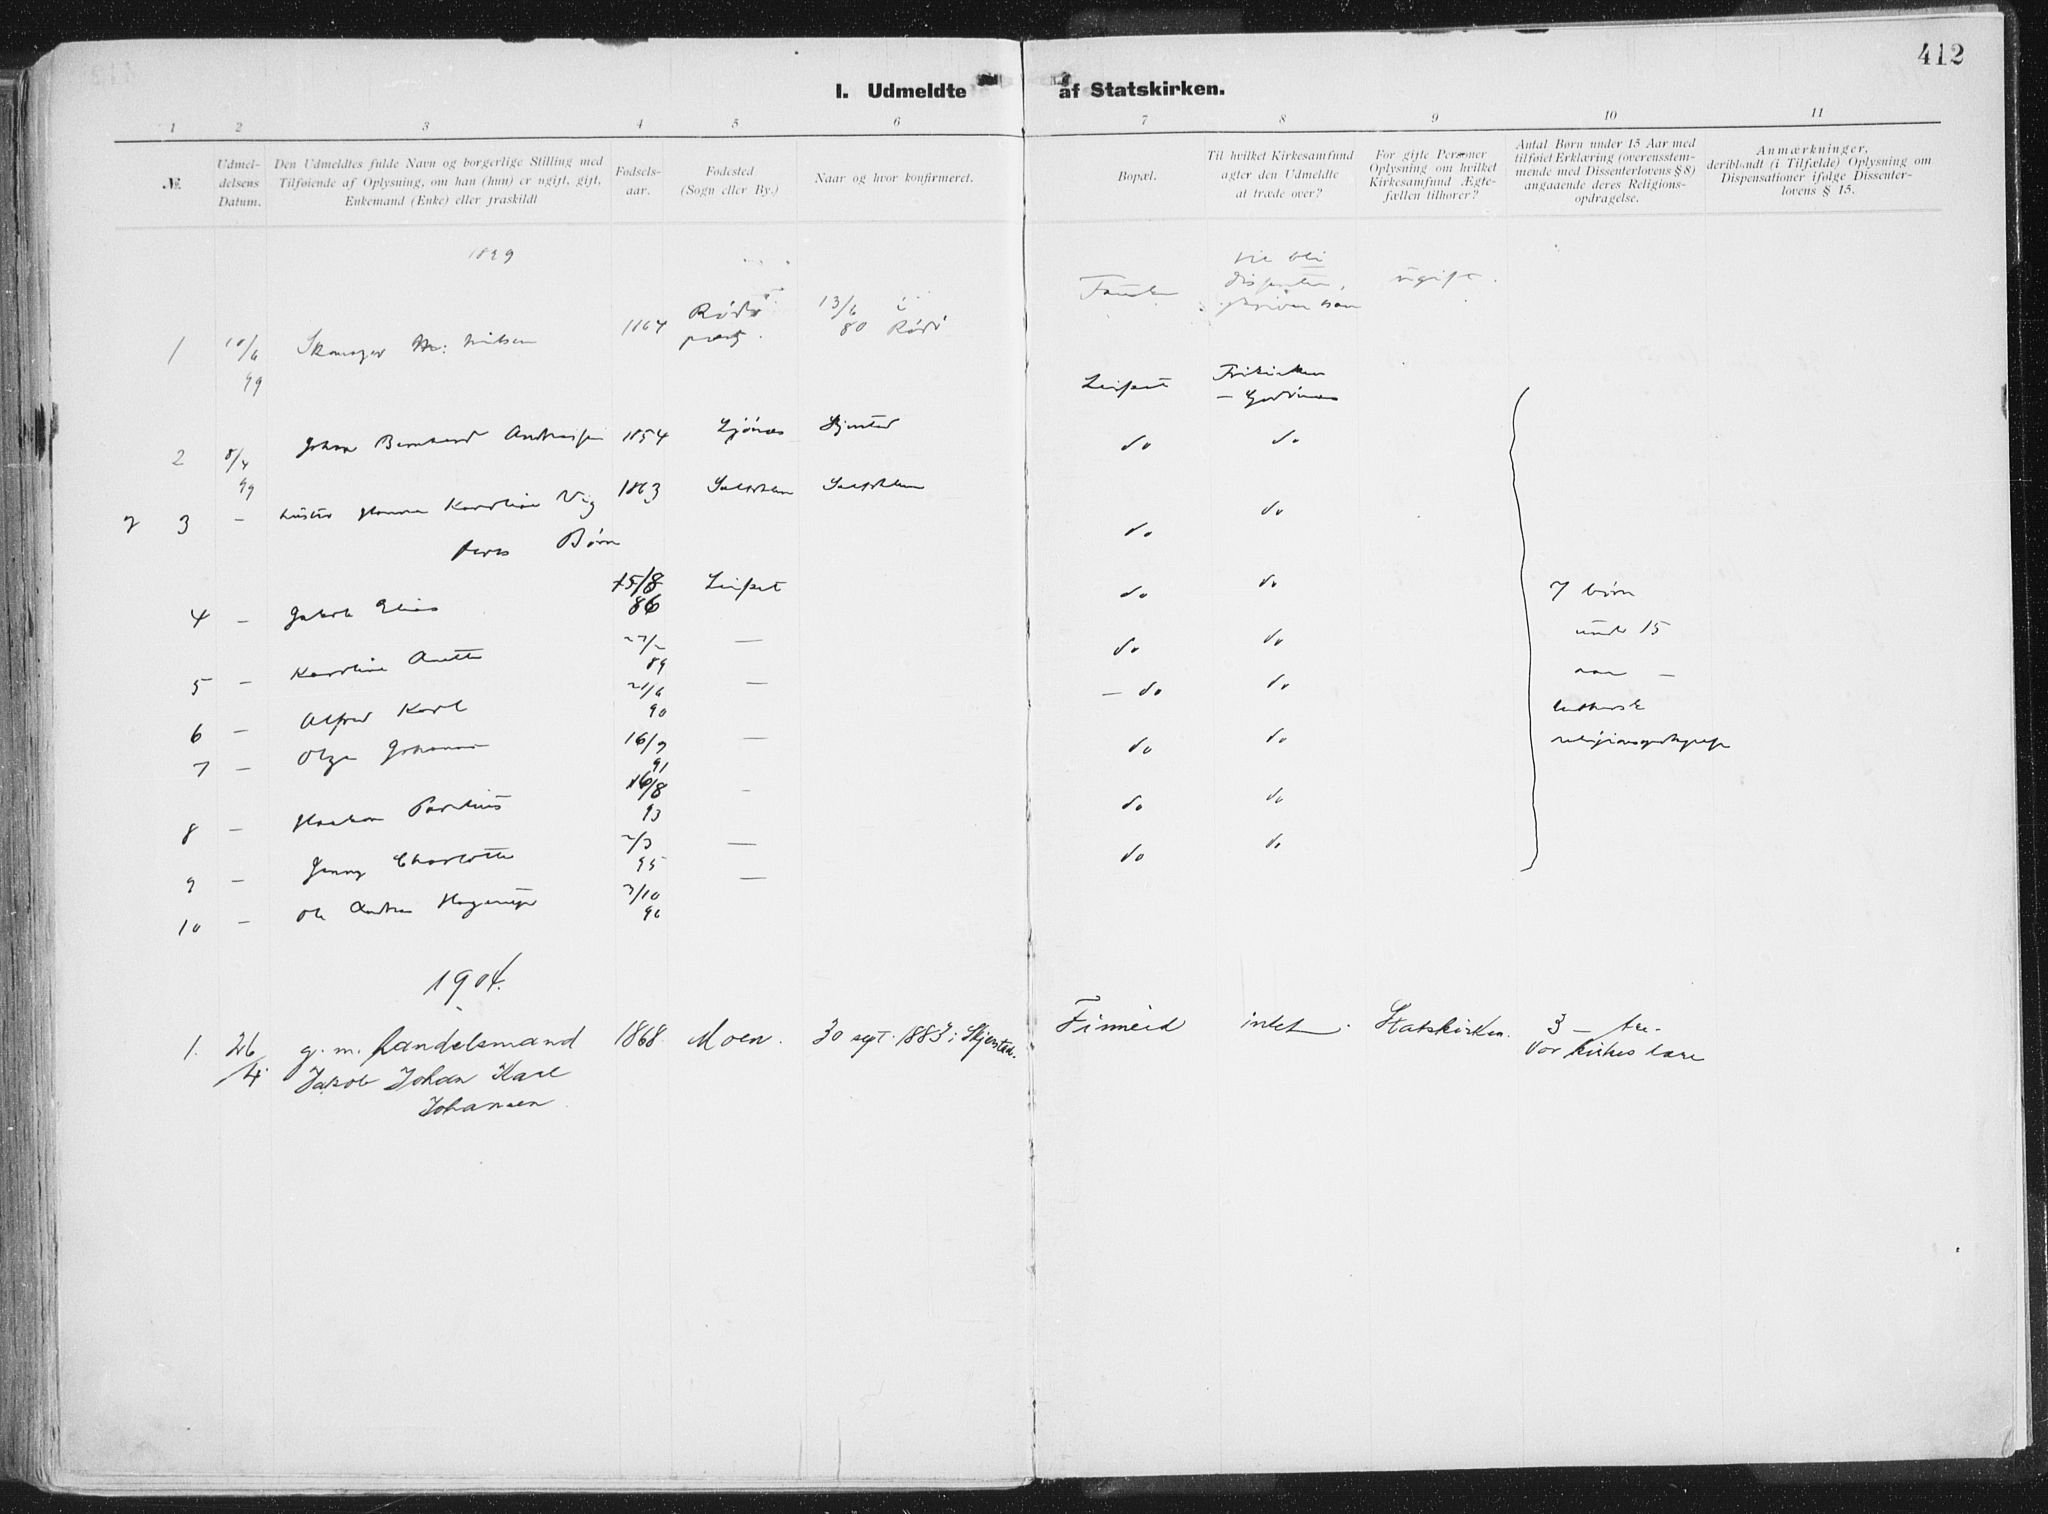 412
I. Udmeldte af Statskirken.
1 2 3 4 5 6 7 8 9 10 11
№.
Udmel-
delsens
Datum.
Den Udmeldtes fulde Navn og borgerlige Stilling med
Tilføiende af Oplysning, om han (hun) er ugift, gift,
Enkemand (Enke) eller fraskildt
Fødsels-
aar.
Fødested
(Sogn eller By.)
Naar og hvor konfirmeret.
Bopæl.
Til hvilket Kirkesamfund
agter den Udmeldte
at træde over?
For gifte Personer
Oplysning om hvilket
Kirkesamfund Ægte-
fællen tilhører?
Antal Børn under 15 Aar med
tilføiet Erklæring (overensstem-
mende med Dissenterlovens § 8)
angaaende deres Religions-
opdragelse.
Anmærkninger,
deriblandt (i Tilfælde) Oplysning om
Dispensationer ifølge Dissenter-
lovens § 15.
1899
1 10/6 99 Skomager Nilsen 1864 Rødø præstg. 13/6 80 i Rødø ugift.
2 8/4 99 Johan Bernhard Andreassen 1854 Skjerstad Leifset Frikirken
3 - hustru Hanna Karoline Vig 1863 Saltdalen Saltdalen do do
deres Børn
4 - Jakob Elias 15/8 86 Leifset do do
5 - Karoline Anette 27/2 89 — do do
6 - Alfred Karl 21/6 90 — do do
7 - Olga Johanna 16/9 91 — do do
8 - Haakon Parelius 16/8 93 - do do
9 - Jenny Charlotte 2/3 95 — do do
10 - Ole Andreas 3/10 96 — do do
7 børn
under 15
aar —
luthersk
1904.
1. 26/4 g. m. handelsmand 1868 Moen. 30 sept. 1883 i Skjerstad. Finneid intet. Statskirken. 3 — tre.
Jakob Johan Karl
Johansen
Vor kirkes lære